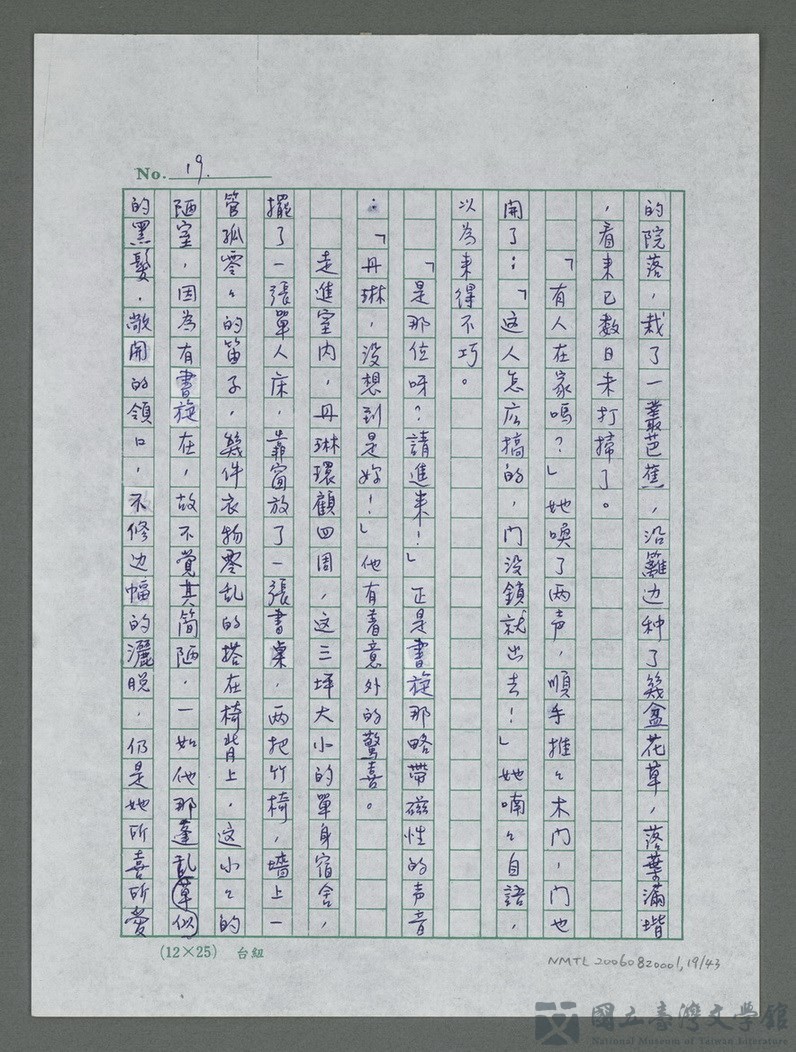 No. 19.
的院落，栽了一叢芭蕉，沿籬边种了幾盆花草，落葉滿堦
，看来已數日未打掃了。
「有人在家嗎？」她喚了两声，順手推々木门，门也
開了：「这人怎広搞的，门没鎖就出去！」她喃々自語，
以為来得不巧。
「是那位呀？請進来！」正是書旋那略帶磁性的声音
：「丹琳，没想到是妳！」他有着意外的驚喜。
走進室内，丹琳環顧四周，这三坪大小的單身宿舍，
擺了一張單人床，靠窗放了一張書桌，两把竹椅，墻上一
管孤零々的笛子，幾件衣物零乱的搭在椅背上，这小々的
陋室，因為有書旋在，故不覚其简陋，一如他那蓬乱(草似)
的黑髮，敞開的領口，不修边幅的灑脱，仍是她所喜所愛
(12×25) 台組
NMTL 20060820001, 19/43
國立臺灣文學館
National Museum of Taiwan Literature